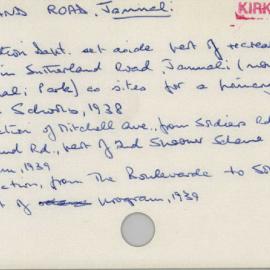 AND ROAD, Jannali
KIRK
tion Dept. set aside part of recrea
in Sutherland Road, Jannali (now
ali Park) as sites for a prima
Schools, 1938
ction of Mitchell Ave., from Soldiers Rd
and Rd., part of 2nd Sewer Scheme
m, 1939
ction, from The Boulevarde to So
t of program, 1939